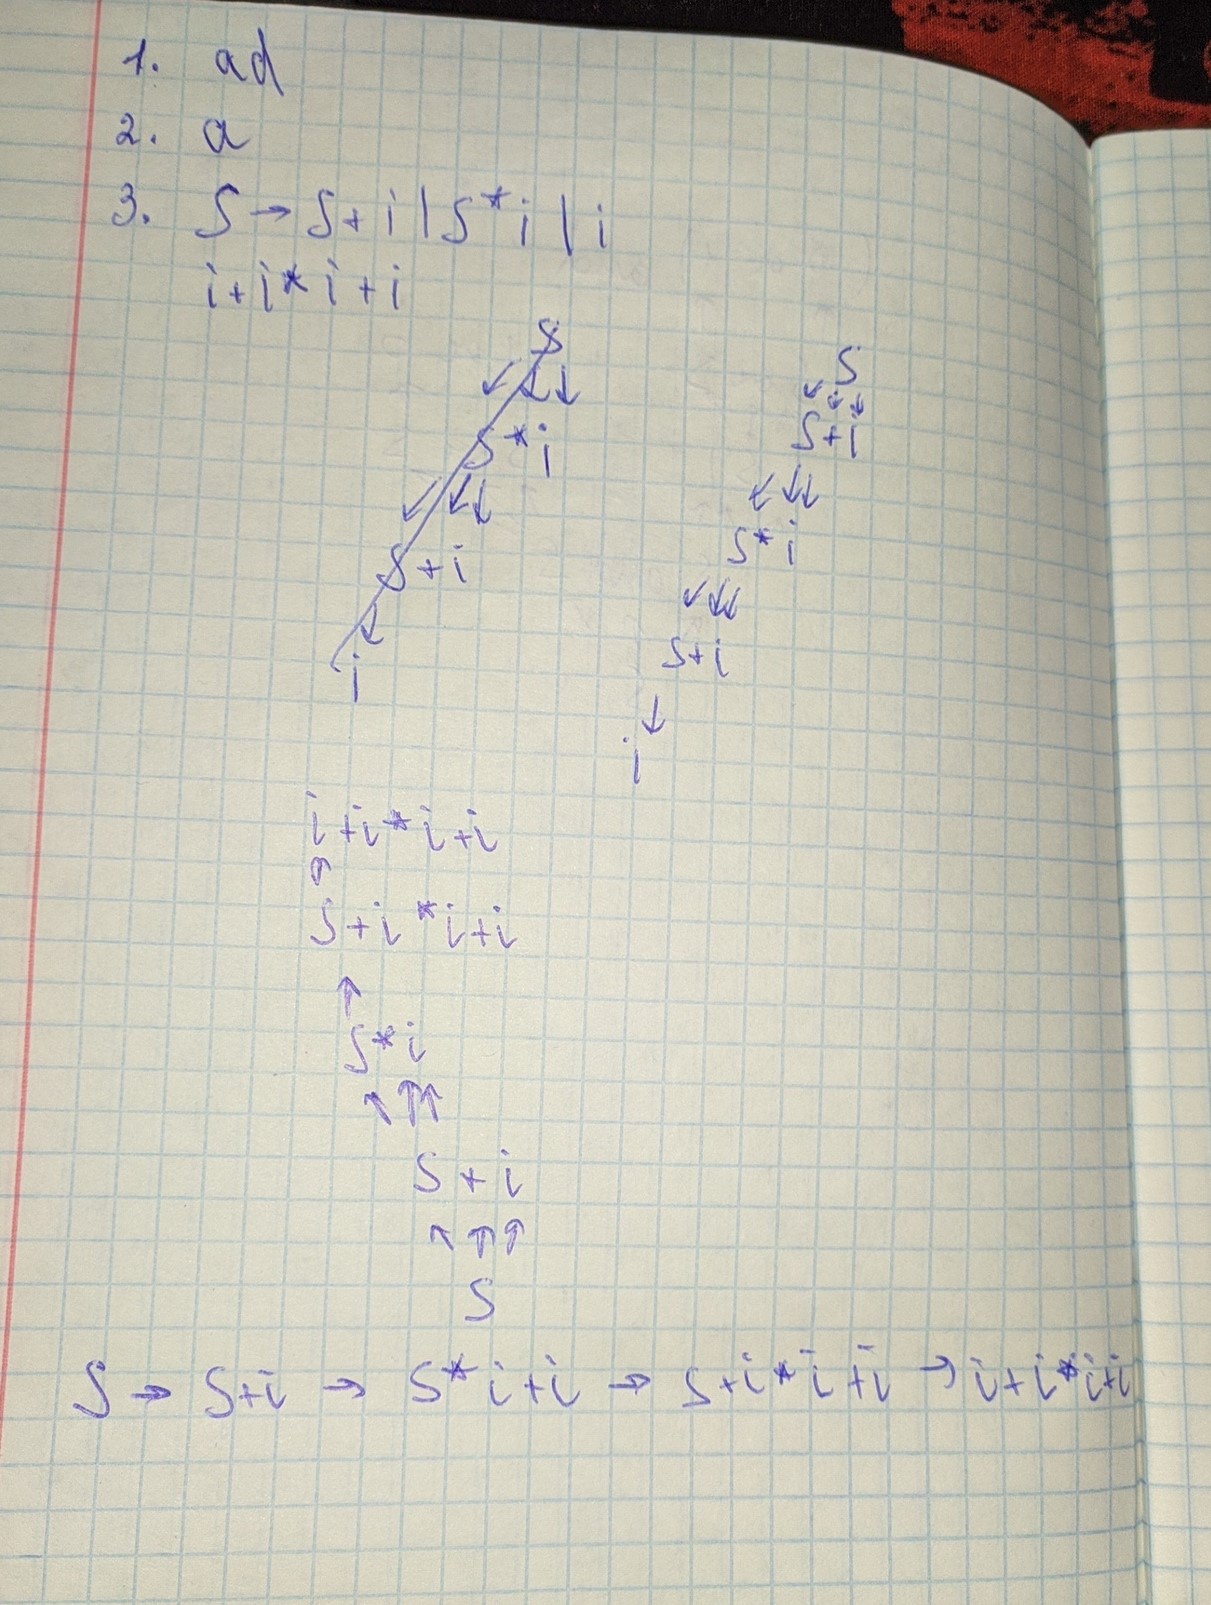 1. ad
2. a
3. S → S+i | S*i | i
i+i*i+i
S
S*i
S+i
i
S
S+i
S*i
S+i
i
i+i*i+i
S+i*i+i
S*i
S+i
S
S → S+i → S*i+i → S+i*i+i → i+i*i+i